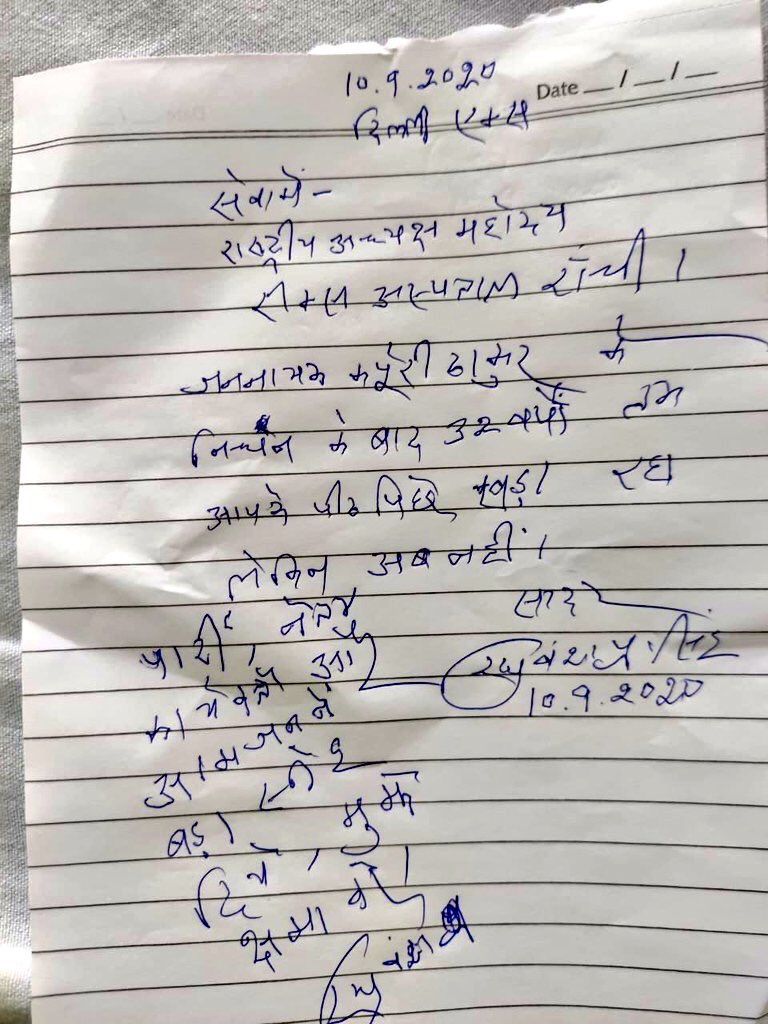 10.9.2020
Date __/__/__
दिल्ली एम्स
सेवामें-
राष्ट्रीय अध्यक्ष महोदय
रिम्स अस्पताल रांची।
जननायक कर्पूरी ठाकुर के
निधन के बाद 32 वर्षों तक
आपके पीठ पिछे खड़ा रहा
लेकिन अब नहीं।
सादर
रघुवंश प्र. सिंह
10.9.2020
पार्टी, नेता
कार्यकर्ता और
आमजन ने
बड़ा स्नेह
दिया, मुझे
क्षमा करें।
रघुवंश